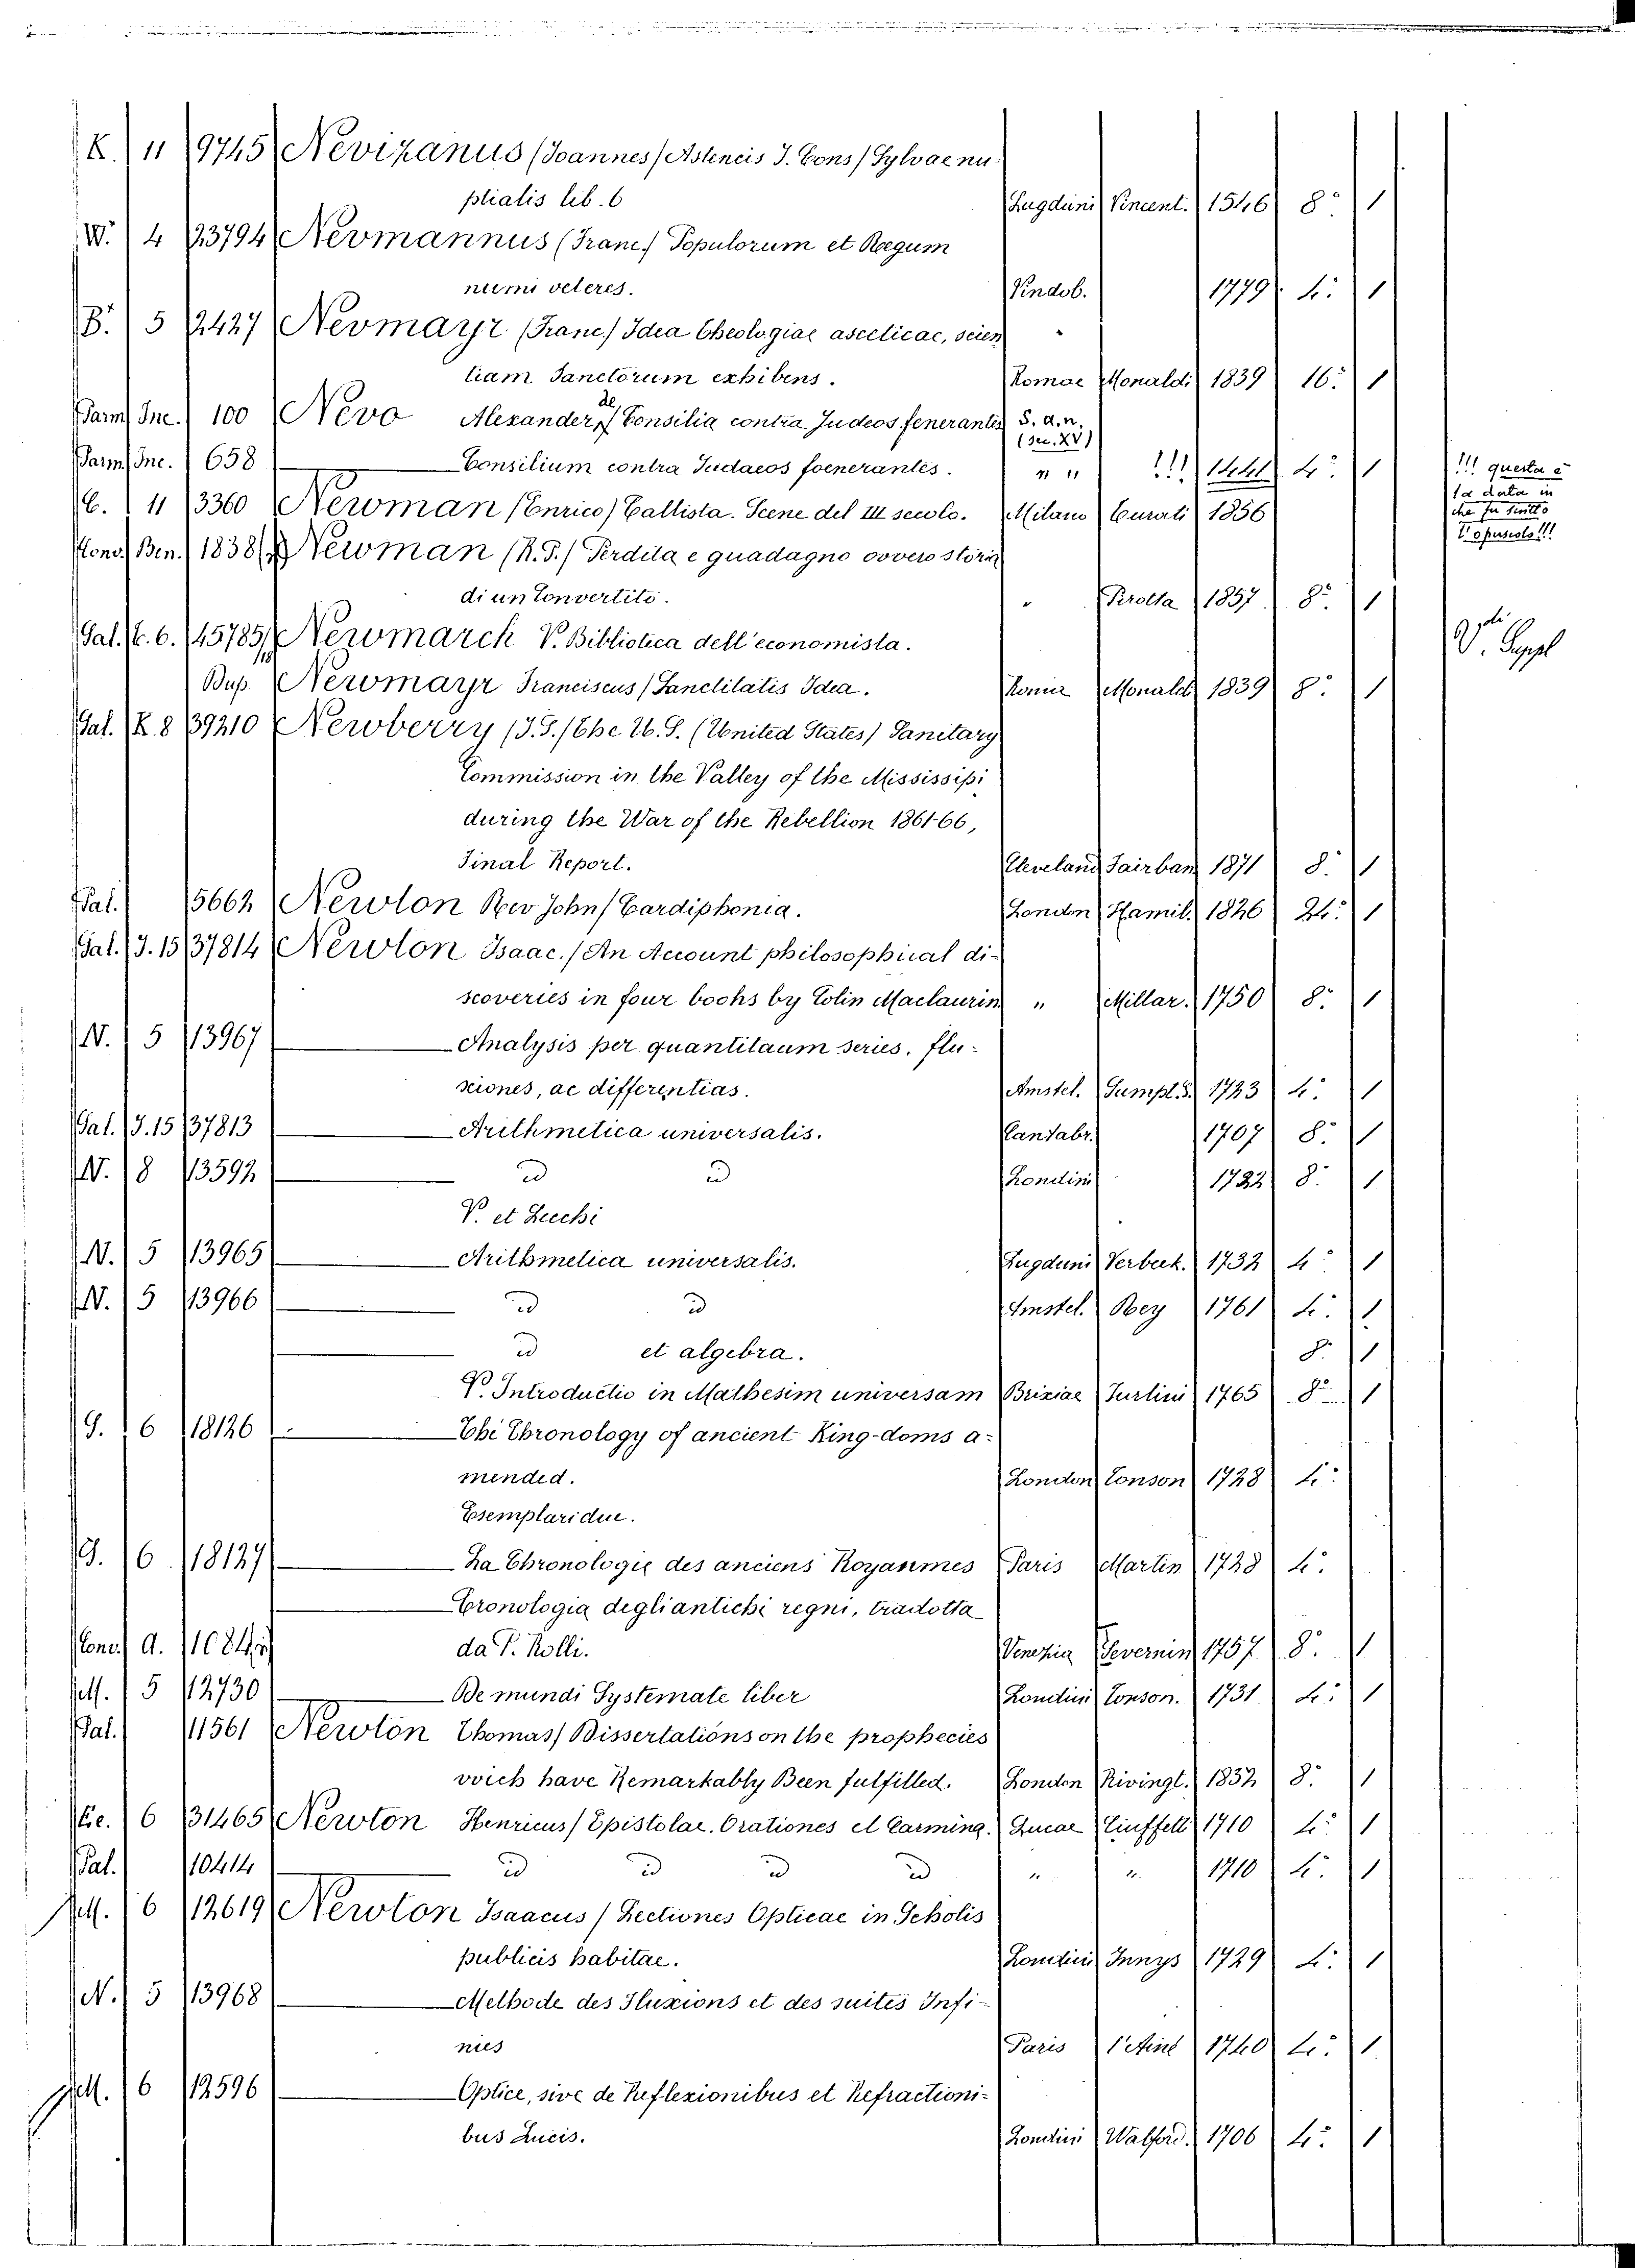 K. 11 9745 Nevizanus (Joannes) Astencis J. Cons / Sylvae nu-
ptialis lib. 6 Lugduni Vincent. 1546 8° 1
W. 4 23794 Nevmannus (Franc.) Populorum et Regum
numi veteres. Vindob. 1779 4: 1
B. 5 2427 Nevmayr (Franc) Idea Theologiae asceticae, scien
tiam Sanctorum exhibens. Romae Monaldi 1839 16: 1
Parm Inc. 100 Nevo Alexander de / Consilia contra Judeos fenerantes S. d. n. (sec. XV)
Parm Inc. 658 Consilium contra Judaeos foenerantes. " " !!! 1441 4: 1 !!! questa è
la data in
che fu scritto
l'opuscolo!!!
C. 11 3360 Newman (Enrico) Callista. Scene del III secolo. Milano Turati 1856
Cons. Ben. 1838 Newman (R. P.) Perdita e guadagno ovvero storia
di un Convertito. " Pirotta 1857 8° 1
Gal. C. 6. 45785 Newmarch V. Biblioteca dell'economista. V. Suppl
Dup Newmayr Franciscus / Sanctitatis Idea. Romae Monaldi 1839 8: 1
Gal. K. 8 39210 Newberry (J. S. / The U. S. (United States) Sanitary
Commission in the Valley of the Mississipi
during the War of the Rebellion 1861-66,
Final Report. Cleveland Fairban 1871 8. 1
Pal. 15662 Newton Rev John / Cardiphonia. London Hamil. 1826 24: 1
Gal. J. 15 37814 Newton Isaac. / An Account philosophical di-
scoveries in four boohs by Colin Maclaurin " Millar. 1750 8: 1
N. 5 13967 Analysis per quantitaum series. flu-
sciones, ac differentias. Amstel. Sumpt. S. 1723 4: 1
Gal. J. 15 37813 Arithmetica universalis. Cantabr. 1707 8: 1
N. 8 13592 id id Londini 1722 8: 1
V. et Lecchi
N. 5 13965 Arithmetica universalis. Lugduni Verbeek. 1732 4: 1
N. 5 13966 id id Amstel. Rey 1761 4: 1
id et algebra. 8. 1
V. Introductio in Mathesim universam Brixiae Turlini 1765 8° 1
G. 6 18126 Thi Chronology of ancient King-doms a-
mended. London Tonson 1728 4:
Esemplari due.
G. 6 18127 La Chronologie des anciens Royaumes Paris Martin 1728 4:
Cronologia degli antichi regni, tradotta
Cons. a. da P. Rolli. Venezia Tevernin 1757 8: 1
M. 5 12730 De mundi Systemate liber Londini Tonson. 1731 4: 1
Pal. 11561 Newton Thomas / Dissertations on the prophecies
vvich have Remarkably Been fulfilled. London Rivingt. 1832 8: 1
Cc. 6 31465 Newton Henricus / Epistolae. Orationes et Carmina. Lucae 1710 4: 1
Pal. 10414 id id id id " " 1710 4: 1
M. 6 12619 Newton Isaacus / Lectiones Opticae in Scholis
publicis habitae. Londini Innys 1729 4: 1
N. 5 13968 Methode des Fluxions et des suites Infi-
nies Paris 1740 4: 1
M. 6 12596 Optice, sive de Reflexionibus et Refractioni-
bus Lucis. Londini Walford. 1706 4: 1